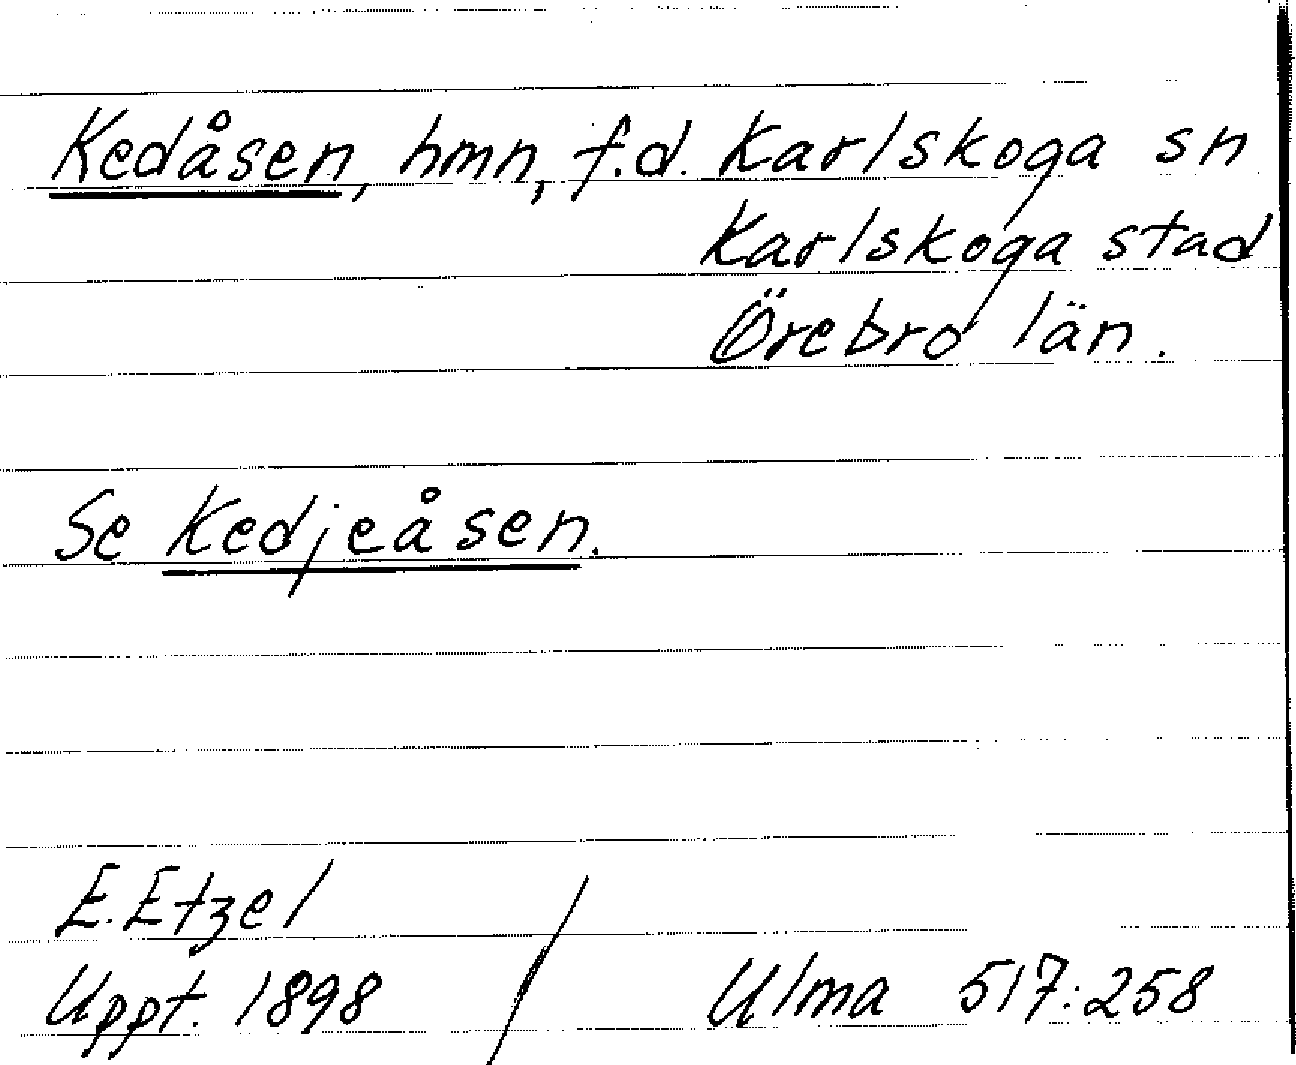 Kedåsen, hmn, f.d. Karlskoga sn
Karlskoga stad
Örebro län.
Se Kedjeåsen.
E. Etzel
Uppt. 1898 / Ulma 517:258